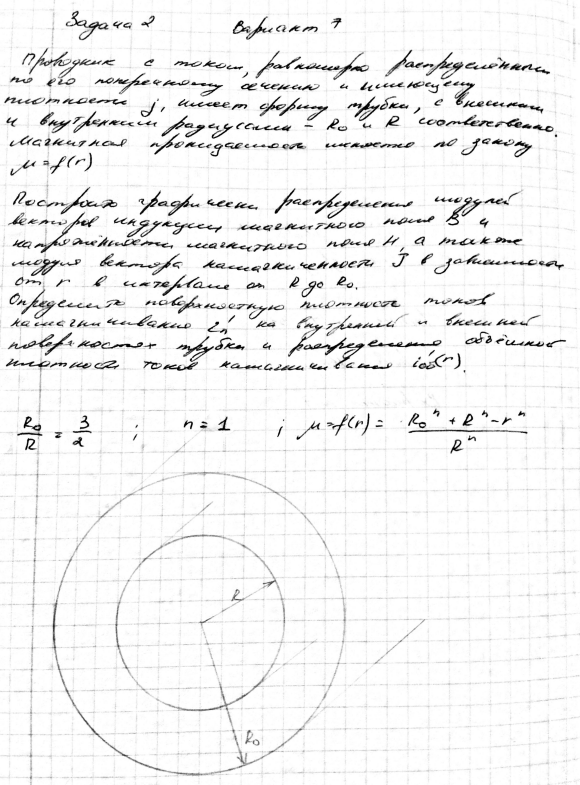 Задача 2 Вариант 7
Проводник с током, равномерно распределённым
по его поперечному сечению и имеющему
плотность j, имеет форму трубки, с внешним
и внутренним радиусами - R₀ и R соответственно.
Магнитная проницаемость меняется по закону
μ=f(r)
Построить графически распределения модулей
векторов индукции магнитного поля B и
напряжённости магнитного поля H, а также
модуля вектора намагниченности J в зависимости
от r в интервале от R до R₀.
Определить поверхностную плотность токов
намагничивания i'ₙ на внутренней и внешней
поверхностях трубки и распределение объёмной
плотности токов намагничивания i'об(r).
R₀/R = 3/2 ; n=1 ; μ=f(r)= (R₀ⁿ+Rⁿ-rⁿ)/Rⁿ
R
R₀